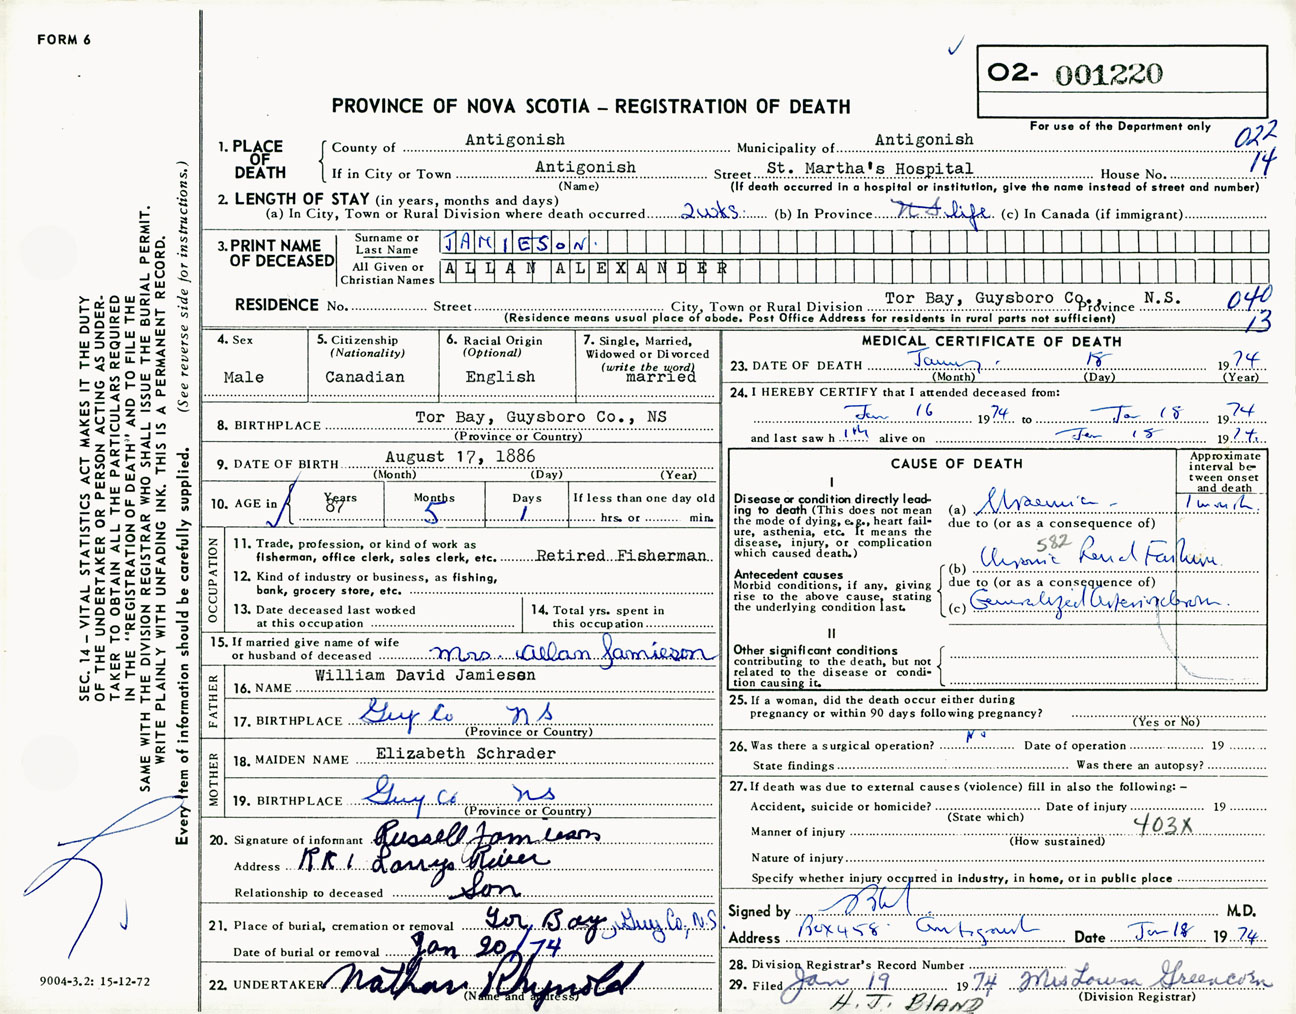 FORM 6
O2- 001220
PROVINCE OF NOVA SCOTIA – REGISTRATION OF DEATH
For use of the Department only
022
14
1. PLACE OF DEATH
County of Antigonish Municipality of Antigonish
If in City or Town Antigonish Street St. Martha's Hospital House No.
(Name) (If death occurred in a hospital or institution, give the name instead of street and number)
2. LENGTH OF STAY (in years, months and days)
(a) In City, Town or Rural Division where death occurred 2 wks. (b) In Province N S life (c) In Canada (if immigrant)
3. PRINT NAME OF DECEASED
Surname or Last Name JAMIESON
All Given or Christian Names ALLAN ALEXANDER
RESIDENCE No. Street City, Town or Rural Division Tor Bay, Guysboro Co., Province N.S. 040
(Residence means usual place of abode. Post Office Address for residents in rural parts not sufficient) 13
4. Sex Male
5. Citizenship (Nationality) Canadian
6. Racial Origin (Optional) English
7. Single, Married, Widowed or Divorced (write the word) married
8. BIRTHPLACE Tor Bay, Guysboro Co., NS
(Province or Country)
9. DATE OF BIRTH August 17, 1886
(Month) (Day) (Year)
10. AGE in Years 87 Months 5 Days 1 If less than one day old
hrs. or min.
OCCUPATION
11. Trade, profession, or kind of work as
fisherman, office clerk, sales clerk, etc. Retired Fisherman
12. Kind of industry or business, as fishing,
bank, grocery store, etc.
13. Date deceased last worked at this occupation
14. Total yrs. spent in this occupation
15. If married give name of wife
or husband of deceased Mrs. Allan Jamieson
FATHER
16. NAME William David Jamieson
17. BIRTHPLACE Guy Co NS
(Province or Country)
MOTHER
18. MAIDEN NAME Elizabeth Schrader
19. BIRTHPLACE Guy Co. NS
(Province or Country)
20. Signature of informant Russell Jamieson
Address RR 1 Larrys River
Relationship to deceased Son
21. Place of burial, cremation or removal Tor Bay, Guy. Co, N.S.
Date of burial or removal Jan 20/74
22. UNDERTAKER Nathan Rhynold
(Name and address)
MEDICAL CERTIFICATE OF DEATH
23. DATE OF DEATH 18 1974
(Month) (Day) (Year)
24. I HEREBY CERTIFY that I attended deceased from:
Jan 16 1974 to Jan 18 1974
and last saw h im alive on Jan 18 1974.
CAUSE OF DEATH
Approximate interval between onset and death
I
Disease or condition directly leading to death (This does not
mean the mode of dying, e.g., heart failure, asthenia, etc. It means the
disease, injury, or complication
which caused death.)
(a) Uraemia 1 month.
due to (or as a consequence of)
582
Antecedent causes
Morbid conditions, if any, giving
rise to the above cause, stating
the underlying condition last.
(b) Chronic Renal Failure.
due to (or as a consequence of)
(c) Generalized Arteriosclerosis.
II
Other significant conditions
contributing to the death, but not
related to the disease or condition causing it.
25. If a woman, did the death occur either during
pregnancy or within 90 days following pregnancy?
(Yes or No)
26. Was there a surgical operation? No Date of operation 19
State findings Was there an autopsy?
27. If death was due to external causes (violence) fill in also the following: –
Accident, suicide or homicide? Date of injury 19
(State which)
Manner of injury 403X
(How sustained)
Nature of injury
Specify whether injury occurred in industry, in home, or in public place
Signed by M.D.
Address Box 458 Antigonish Date Jan 18 1974.
28. Division Registrar's Record Number
29. Filed Jan 19 1974 Mrs Lowsa Greencorn
(Division Registrar)
H. J. BLAND
SEC. 14 – VITAL STATISTICS ACT MAKES IT THE DUTY
OF THE UNDERTAKER OR PERSON ACTING AS UNDER-
TAKER TO OBTAIN ALL THE PARTICULARS REQUIRED
IN THE "REGISTRATION OF DEATH" AND TO FILE THE
SAME WITH THE DIVISION REGISTRAR WHO SHALL ISSUE THE BURIAL PERMIT.
WRITE PLAINLY WITH UNFADING INK. THIS IS A PERMANENT RECORD.
Every item of information should be carefully supplied. (See reverse side for instructions.)
9004-3.2: 15-12-72